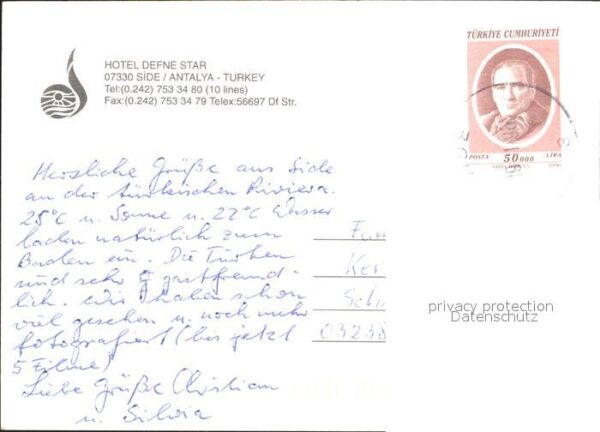 HOTEL DEFNE STAR
07330 SİDE / ANTALYA - TURKEY
Tel:(0.242) 753 34 80 (10 lines)
Fax:(0.242) 753 34 79 Telex:56697 Df Str.
TÜRKİYE CUMHURİYETİ
POSTA 50 000 LİRA
Herzliche Grüße aus Side
an der türkischen Riviera.
25°C u. Sonne u. 22°C Wasser
laden natürlich zum
Baden ein. Die Türken
sind sehr gastfreund-
lich. Wir haben schon
viel gesehen u. noch mehr
fotografiert (bis jetzt
5 Filme)
Liebe Grüße Christian
u. Silvia
Fam
Ker
Sch
03238
privacy protection
Datenschutz